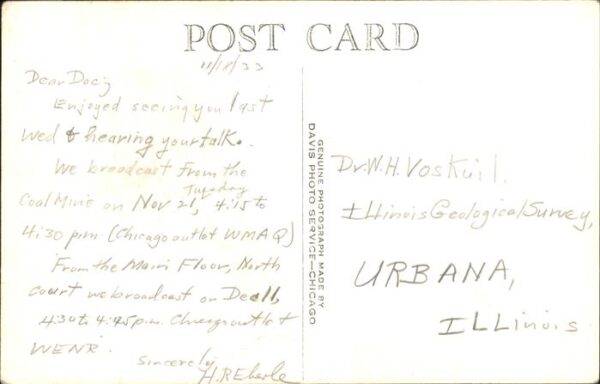 POST CARD
11/18/33
Dear Doc;
Enjoyed seeing you last
Wed & hearing your talk.
We broadcast from the
Tuesday
Coal Mine on Nov 21, 4:15 to
4:30 p.m. (Chicago outlet WMAQ)
From the Main Floor, North
Court we broadcast on Dec 11,
4:30 to 4:45 p.m. Chicago outlet
WENR.
Sincerely
H.R. Eberle
GENUINE PHOTOGRAPH MADE BY
DAVIS PHOTO SERVICE—CHICAGO
Dr. W.H. Voskuil,
Illinois Geological Survey,
URBANA,
ILLinois